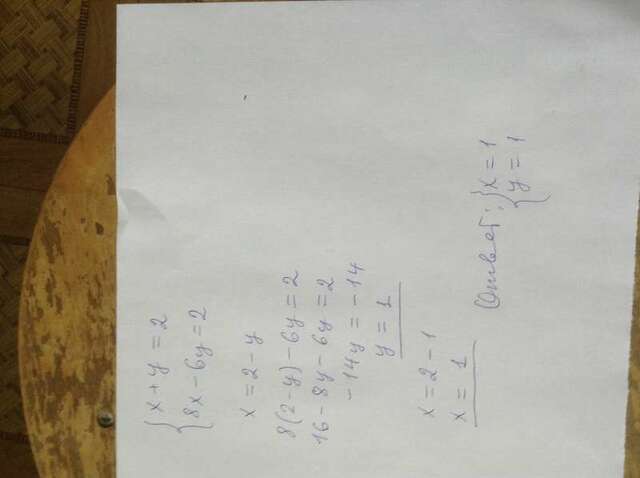 { x + y = 2
8x - 6y = 2
x = 2 - y
8(2 - y) - 6y = 2
16 - 8y - 6y = 2
- 14y = - 14
y = 1
x = 2 - 1
x = 1
Ответ: { x = 1
y = 1